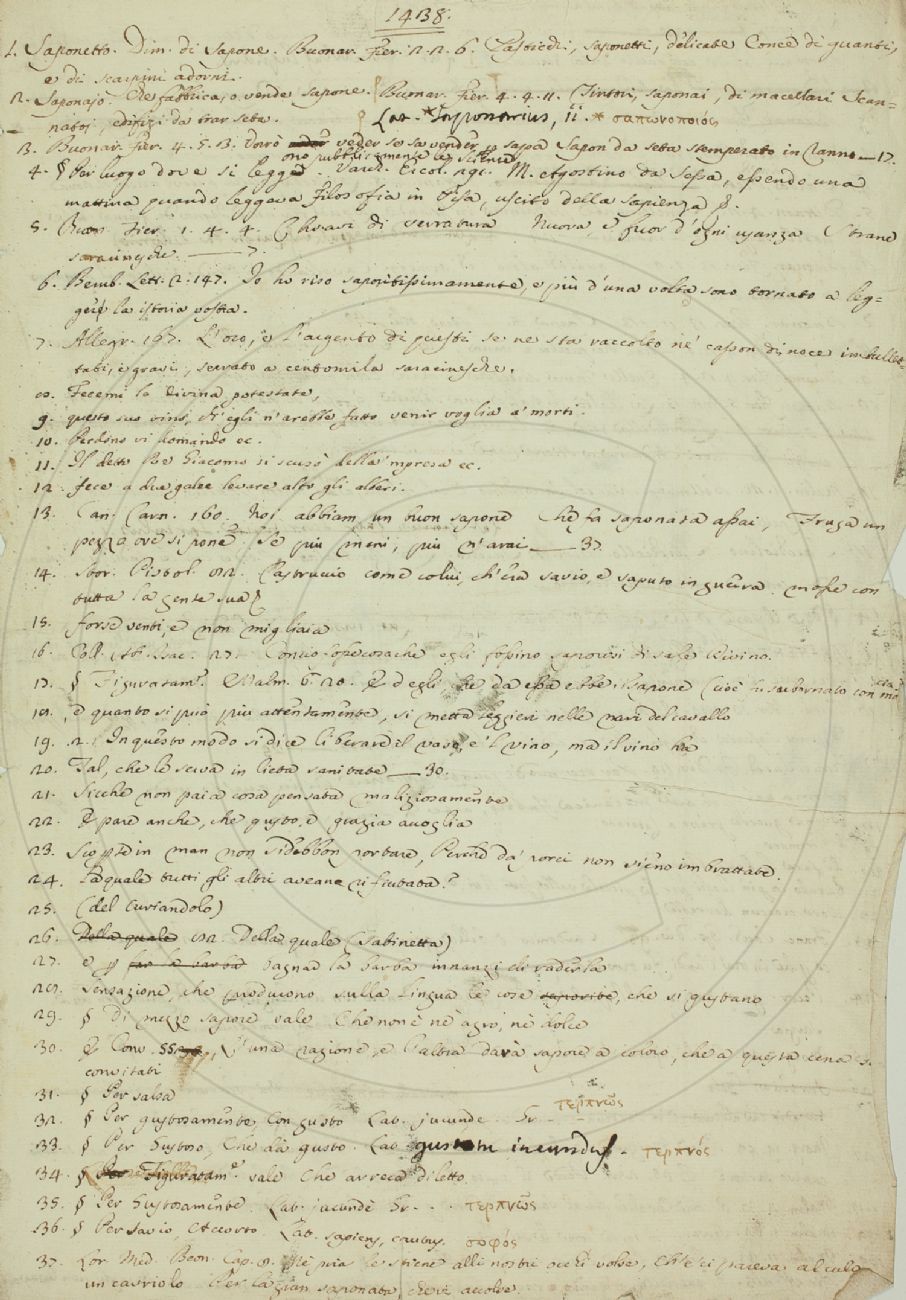 1438.
1. Saponetto. Dim. di Sapone. Buonar. Fier. 2. 2. 6. saponetti, delicate Conce di guanti,
e di scarpini adorni.
2. Saponajo. Che fabbrica, o vende sapone. Buonar. Fier. 4. 4. 11. Tintori, saponai, di macellari Scan-
natoi, edifizi da trar seta. Lat. * Saponarius, ii. * σαπωνοποιός
3. Buonar. Fier. 4. 5. 3. veder se sa vender sapon da seta stemperato in Ranno — 17.
no pubblicamente le scienze
4. § Per luogo dove si legge Varch. Ercol. M. Agostino da Sessa, essendo una
mattina quando leggeva Filosofia in Pisa, uscito della sapienza
5. Buon. Fier. 1. 4. 4. Chiavi di serratura Nuova, e fuor d'ogni usanza Strane
saracinesche. — 7.
6. Bemb. Lett. 2. 147. Io ho riso saporitissimamente, e più d'una volta sono tornato a leg-
gere la istoria vostra.
7. Allegr. 167. L'oro, e l'argento di questi se ne sta raccolto ne' casson di noce imbullet-
tati, e gravi, serrato a centomila saracinesche.
8. Fecemi la divina potestate,
9. questo suo vino, ch'egli n'arebbe fatto venir voglia a' morti.
10. Perdono vi domando ec.
11. Il detto Re Giacomo si scusò della 'mpresa ec.
12. fece a due galee levare alto gli alberi.
13. Can. Carn. 160. Noi abbiam un buon sapone Che fa saponata assai, Fruga un
pezzo ove si pone Se più meni, più n'arai — 37
14. Stor. Pistol. 82. Castruccio come colui, ch'era savio, e saputo in guerra mosse con
tutta la gente sua
15. forse venti, e non migliaia
16. Coll. Ab. Isac. 27. cosa che egli fossino saporosi di sale Divino.
17. § Figuratam.e Malm. 6. 20. E d'egli, che da essa ebbe il sapone (cioè fu subornato con
18. e quanto si può più attentamente, si metta leggieri nelle nari del cavallo
19. 2. In questo modo si dice liberare il vaso, e 'l vino, ma il vino ha
20. Tal, che le serva in lieta sanitate — 30.
21. Sicchè non paia cosa pensata maliziosamente
22. E pare anche, che gusto, e grazia accoglia
23. in man non si debbon portare, Perchè da' porci non sieno imbrattate.
24. La quale tutti gli altri aveano rifiutata?
25. (del Curiandolo)
26. Della quale 82. Della quale (Sabinetta)
27. e p far la barba bagnar la barba innanzi di raderla
28. sensazione, che producono sulla lingua le cose saporite, che si gustano
29. § Di mezzo sapore vale Che non è nè agro, nè dolce
30. E Conv. 55. L'una ragione, e l'altra darà sapore a coloro, che a questa cena s.
convitati
31. § Per salsa
32. § Per gustosamente, Con gusto Lat. jucunde Gr. τερπνῶς
33. § Per Gustoso, Che dà gusto. Lat. gustatu iucundus. τερπνός
34. § Per Figuratam.e vale Che arreca diletto
35. § Per Gustosamente. Lat. jucunde Gr. . . τερπνῶς
36. § Per Savio, Accorto. Lat. sapiens, cautus. σοφός
37. Lor. Med. Beon. Cap. 8. Nè pria le schiene alli nostri occhi volse, Ch'e' ci pareva al culo
un cavriolo Per la gran saponata, che vi accolse.